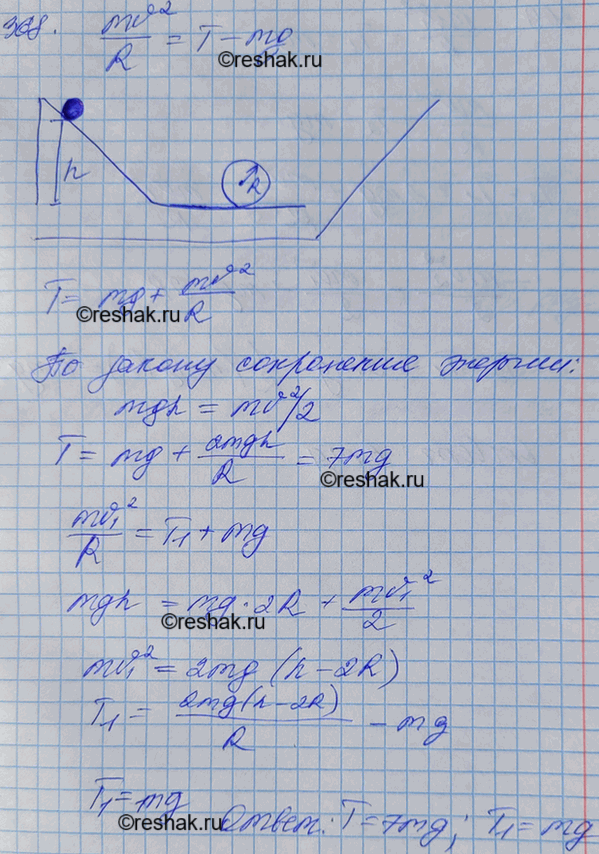 368. mv²/R = T - mg
©reshak.ru
h
R
T = mg + mv²/R
©reshak.ru
По закону сохранение энергии:
mgh = mv²/2
T = mg + 2mgh/R = 7mg
©reshak.ru
mv₁²/R = T₁ + mg
mgh = mg·2R + mv₁²/2
©reshak.ru
mv₁² = 2mg (h - 2R)
T₁ = 2mg(h - 2R)/R - mg
T₁ = mg
©reshak.ru
Ответ: T = 7mg; T₁ = mg